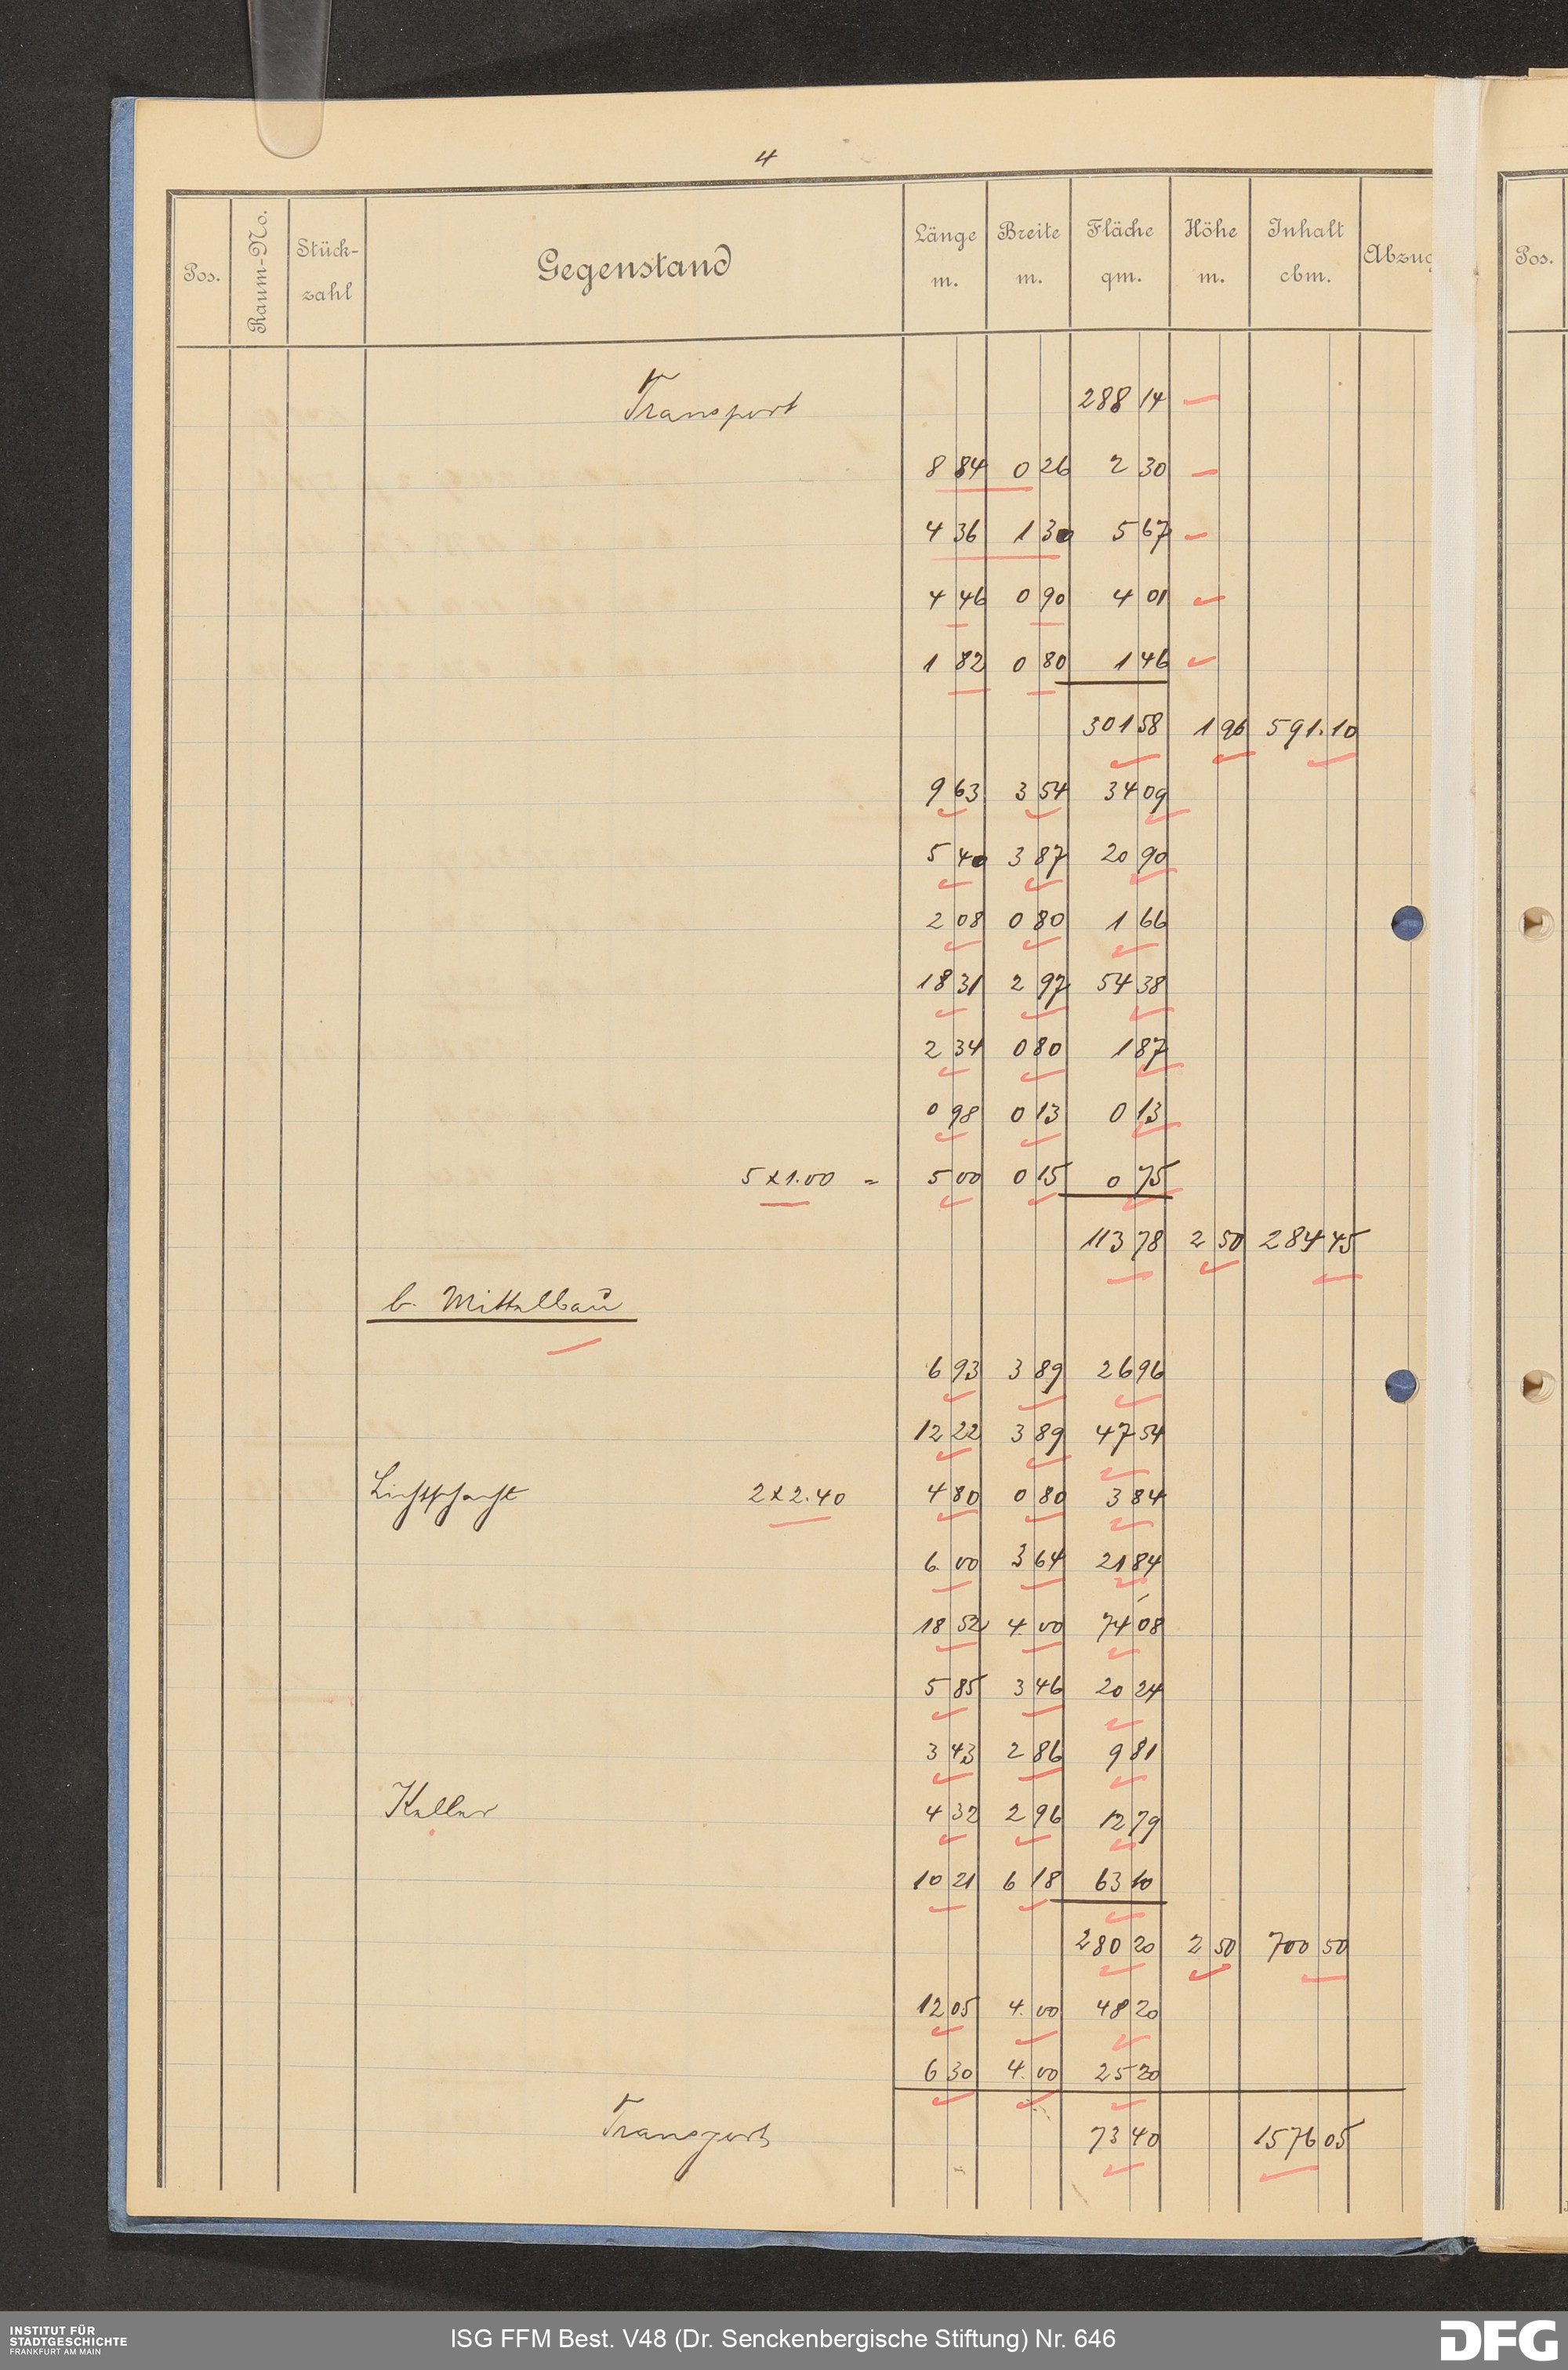 4
Pos. Raum-No. Stück-zahl Gegenstand Länge m. Breite m. Fläche qm. Höhe m. Inhalt cbm. Abzug Pos.
Transport 288 14
8 84 0 26 2 30
4 36 1 30 5 67
4 46 0 90 4 01
1 82 0 80 1 46
301 58 1 96 591.10
9 63 3 54 34 09
5 40 3 87 20 90
2 08 0 80 1 66
18 31 2 97 54 38
2 34 0 80 1 87
0 98 0 13 0 13
5 x 1.00 = 5 00 0 15 0 75
113 78 2 50 284 45
b. Mittelbau
6 93 3 89 26 96
12 22 3 89 47 54
Lichtschacht 2 x 2.40 4 80 0 80 3 84
6 00 3 64 21 84
18 52 4 00 74 08
5 85 3 46 20 24
3 43 2 86 9 81
Keller 4 32 2 96 12 79
10 21 6 18 63 10
280 20 2 50 700 50
12 05 4 00 48 20
6 30 4 00 25 20
Transport 73 40 1576 05
INSTITUT FÜR
STADTGESCHICHTE
FRANKFURT AM MAIN
ISG FFM Best. V48 (Dr. Senckenbergische Stiftung) Nr. 646
DFG